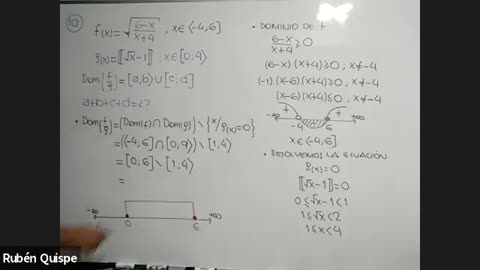 10
f(x)=√((6-x)/(x+4)) , x∈⟨-4,6]
g(x)=⟦√x-1⟧ ; x∈[0,9⟩
Dom(f/g)=[a,b⟩∪[c;d]
a+b+c+d=¿?
• Dom(f/g)=(Dom(f)∩Dom(g))\{x/g(x)=0}
=(⟨-4,6]∩[0,9⟩)\[1,4⟩
=[0,6]\[1,4⟩
=
-∞ 0 6 +∞
• DOMINIO DE f
(6-x)/(x+4)≥0
(6-x)(x+4)≥0; x≠-4
(-1)(x-6)(x+4)≥0, x≠-4
(x-6)(x+4)≤0, x≠-4
+ - +
-∞ -4 6 +∞
x∈⟨-4,6]
• RESOLVEMOS LA ECUACIÓN
g(x)=0
⟦√x-1⟧=0
0≤√x-1<1
1≤√x<2
1≤x<4
Rubén Quispe